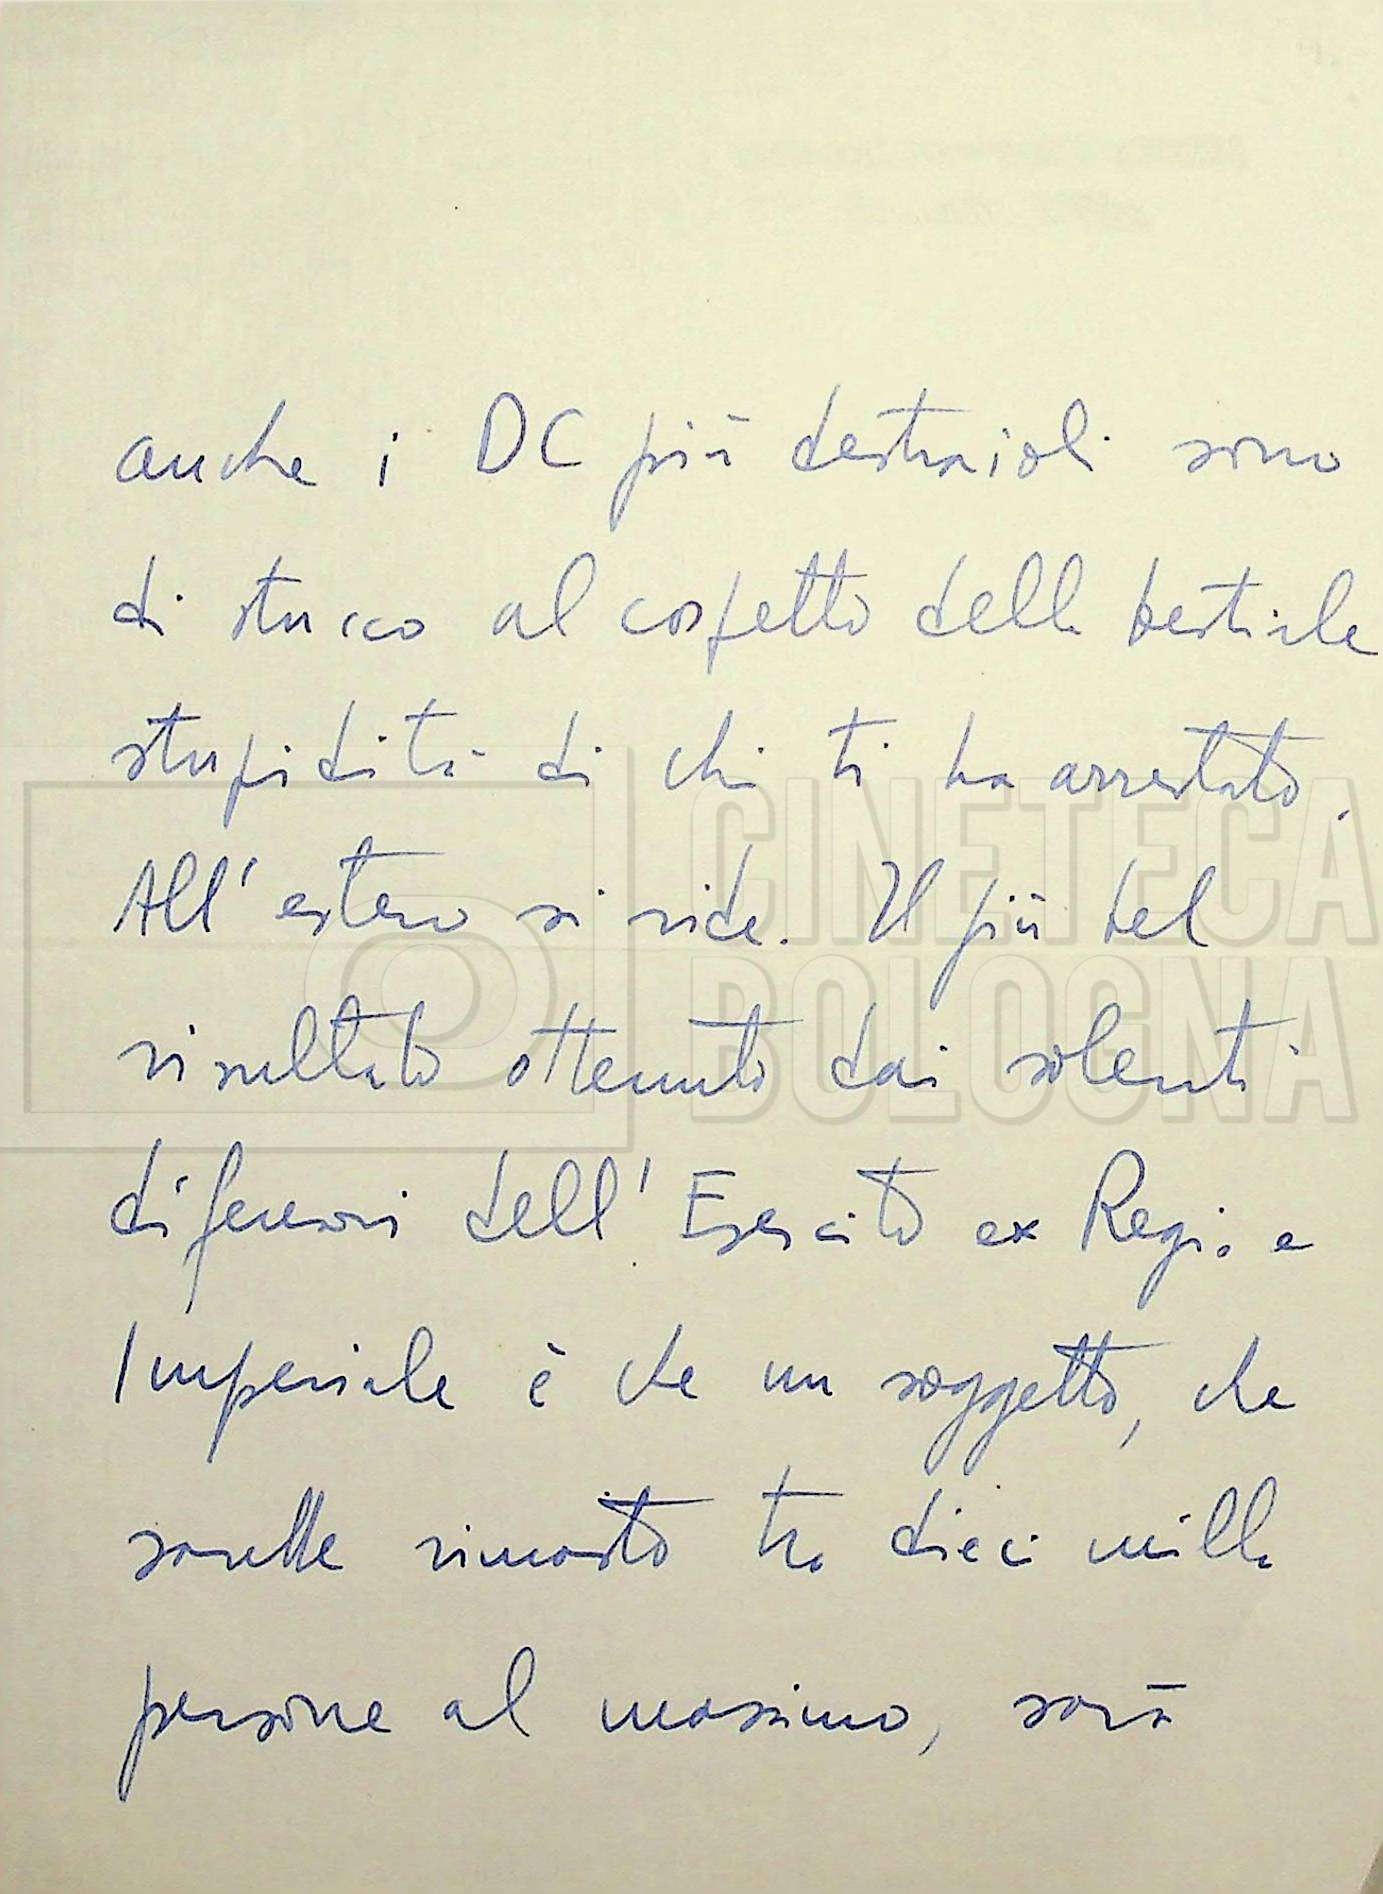 anche i DC più destraioli sono
di stucco al cospetto della bestiale
stupidità di chi ti ha arrestato.
All'estero si ride. Il più bel
risultato ottenuto dai solenti
difensori dell'Esercito ex Regio e
Imperiale è che un soggetto, che
sarebbe rimasto tra dieci milla
persone al massimo, sarà
CINETECA
BOLOGNA